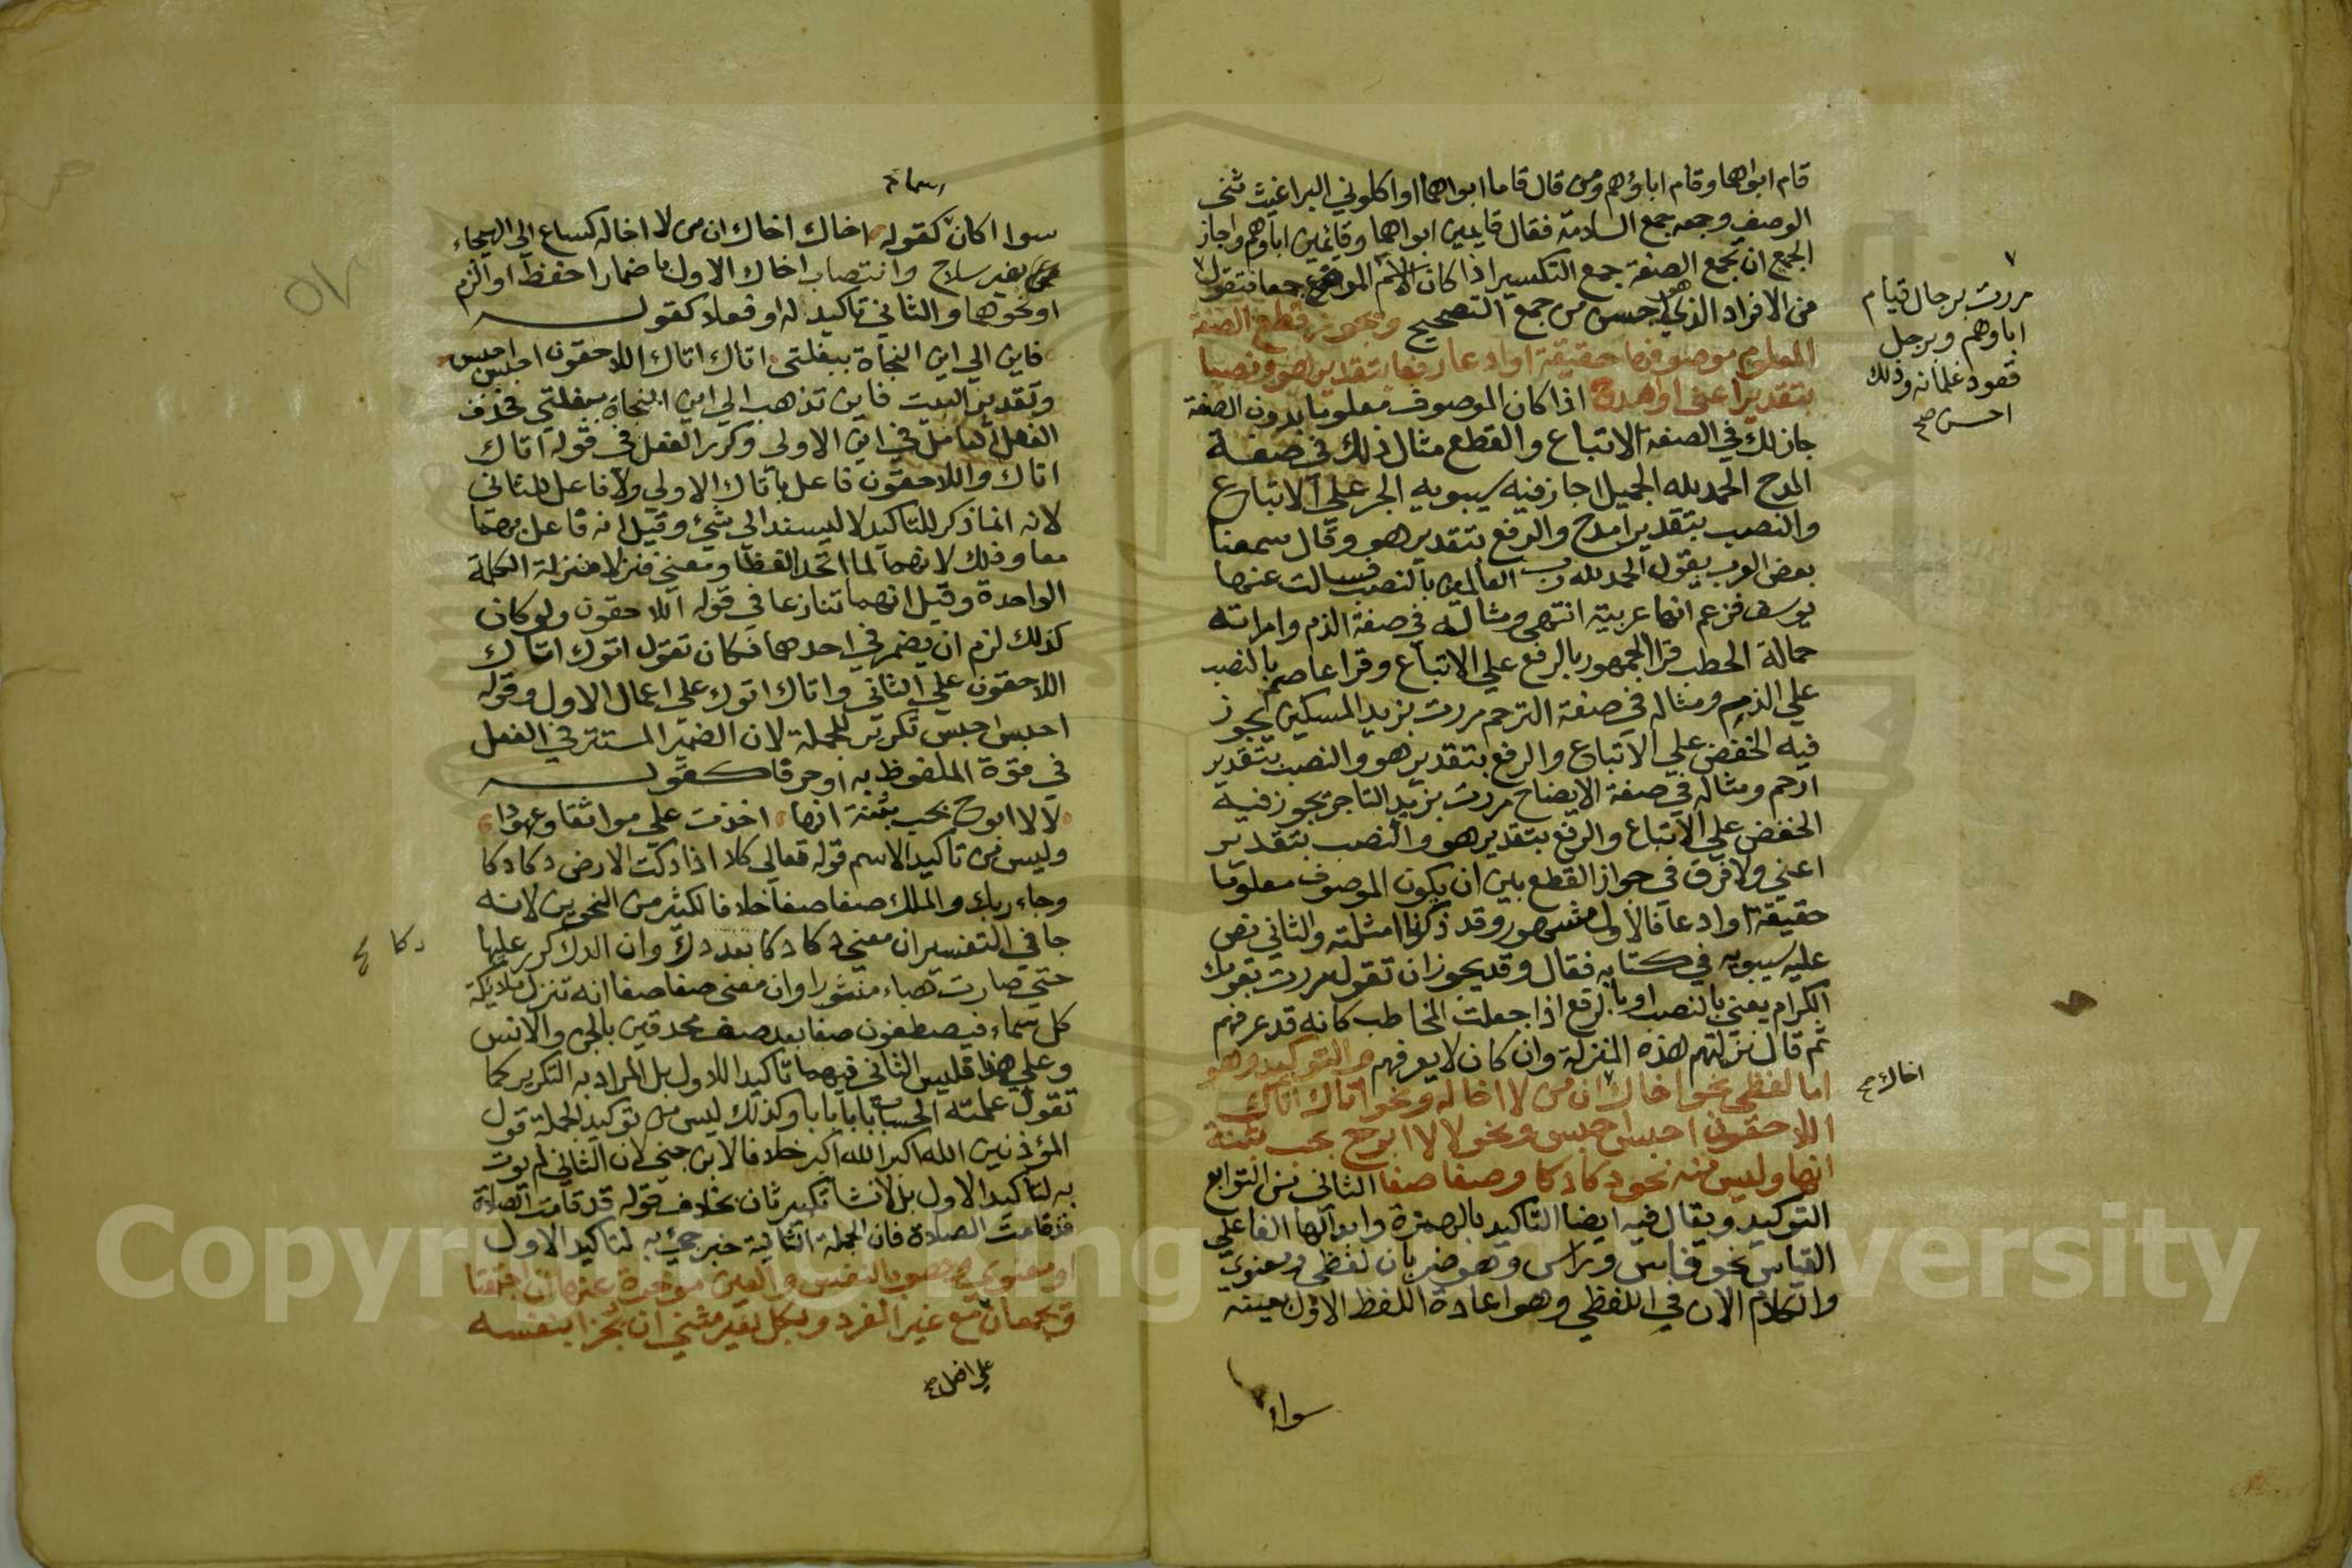 قام ابواهما وقام اباؤهم ومن قال قاما ابواهما او اكلوني البراغيث ثنى
الوصف وجمعه جمع السلامة فقال قايمين ابواهما وقايمين اباؤهم واجاز
الجمع ان تجمع الصفة جمع التكسير اذا كان الاسم المرفوع جمعا فتقول
من الافراد الذي هو احسن من جمع التصحيح ويجوز قطع الصفة
المعلوم موصوفها حقيقة او ادعا رفعا بتقدير هو ونصبا
بتقدير اعني او امدح اذا كان الموصوف معلوما بدون الصفة
جاز لك في الصفة الاتباع والقطع مثال ذلك في صفة
المدح الحمد لله الجميل اجاز فيه سيبويه الجر على الاتباع
والنصب بتقدير امدح والرفع بتقدير هو وقال سمعنا
بعض العرب يقول الحمد لله رب العالمين بالنصب فسالت عنها
يونس فزعم انها عربية انتهى ومثاله في صفة الذم وامراته
حمالة الحطب قرا الجمهور بالرفع علي الاتباع وقرا عاصم بالنصب
علي الذم ومثاله في صفة الترحم مررت بزيد المسكين يجوز
فيه الخفض علي الاتباع والرفع بتقدير هو والنصب بتقدير
ارحم ومثاله في صفة الايضاح مررت بزيد التاجر يجوز فيه
الخفض علي الاتباع والرفع بتقدير هو والنصب بتقدير
اعني ولا فرق في جواز القطع بين ان يكون الموصوف معلوما
حقيقة او ادعا فالاول مشهور وقد ذكرنا امثلته والثاني نص
عليه سيبويه في كتابه فقال وقد يجوز ان تقول مررت بقومك
الكرام يعني بالنصب او بالرفع اذا جعلت المخاطب كانه قد عرفهم
ثم قال نزلتهم هذه المنزلة وان كان لا يعرفهم والتوكيد وهو
اما لفظي نحو اخاك ان من لا اخا له ونحو اتاك اتاك
اللاحقون احبس احبس ونحو لا لا ابوح بحب بثنة
انها وليس منه نحو دكا دكا وصفا صفا الثاني من التوابع
التوكيد ويقال فيه ايضا التاكيد بالهمزة وابدالها الفا علي
القياس نحو فاس وراس وهو ضربان لفظي ومعنوي
والكلام الان في اللفظي وهو اعادة اللفظ الاول بعينه
سواء
مررت برجال قيام
اباوهم وبرجل
قعود غلمانه وذلك
احسن صح
اخاك صح
سوا اكان كقوله اخاك اخاك ان من لا اخا له كساع الي الهيجاء
بغير سلاح وانتصاب اخاك الاول باضمار احفظ او الزم
او نحوهما والثاني تاكيد له او فعلا كقوله
فاين الي اين النجاة ببغلتي اتاك اتاك اللاحقون احبس احبس
وتقدير البيت فاين تذهب الي اين النجاة ببغلتي فحذف
الفعل العامل في اين الاولي وكرر الفعل في قوله اتاك
اتاك واللاحقون فاعل باتاك الاولي ولا فاعل للثاني
لانه انما ذكر للتاكيد لا ليسند الي شيء وقيل انه فاعل بهما
معا وذلك لانهما لما اتحدا لفظا ومعني نزلا منزلة الكلمة
الواحدة وقيل انهما تنازعا في قوله اللاحقون ولو كان
كذلك لزم ان يضمر في احدهما فكان تقول اتوك اتاك
اللاحقون علي الثاني واتاك اتوك علي اعمال الاول وقوله
احبس احبس تكرير للجملة لان الضمير المستتر في الفعل
في قوة الملفوظ به او حرفا كقوله
لا لا ابوح بحب بثنة انها اخذت علي مواثقا وعهودا
وليس من تاكيد الاسم قوله تعالي كلا اذا دكت الارض دكا دكا
وجاء ربك والملك صفا صفا خلافا لكثير من النحويين لانه
جا في التفسير ان معني دكا دكا بعد دك وان الدك كرر عليها
حتي صارت هباء منثورا وان معني صفا صفا انه تنزل ملايكة
كل سماء فيصطفون صفا بعد صف محدقين بالجن والانس
وعلي هذا فليس الثاني فيهما تاكيدا للاول بل المراد به التكرير كما
تقول علمته الحساب بابا بابا وكذلك ليس من توكيد الجملة قول
المؤذنين الله اكبر الله اكبر خلافا لابن جني لان الثاني لم يوت
به لتاكيد الاول بل لانشا تكبير ثان بخلاف قوله قد قامت الصلاة
قد قامت الصلاة فان الجملة الثانية خبر جيء به لتاكيد الاول
او معنوي وهو بالنفس والعين مؤخرة عنها ان اجتمعتا
وتجمعان مع غير المفرد وبكل لغير مثني ان تجزا بنفسه
علي افعل صح
دكا صح